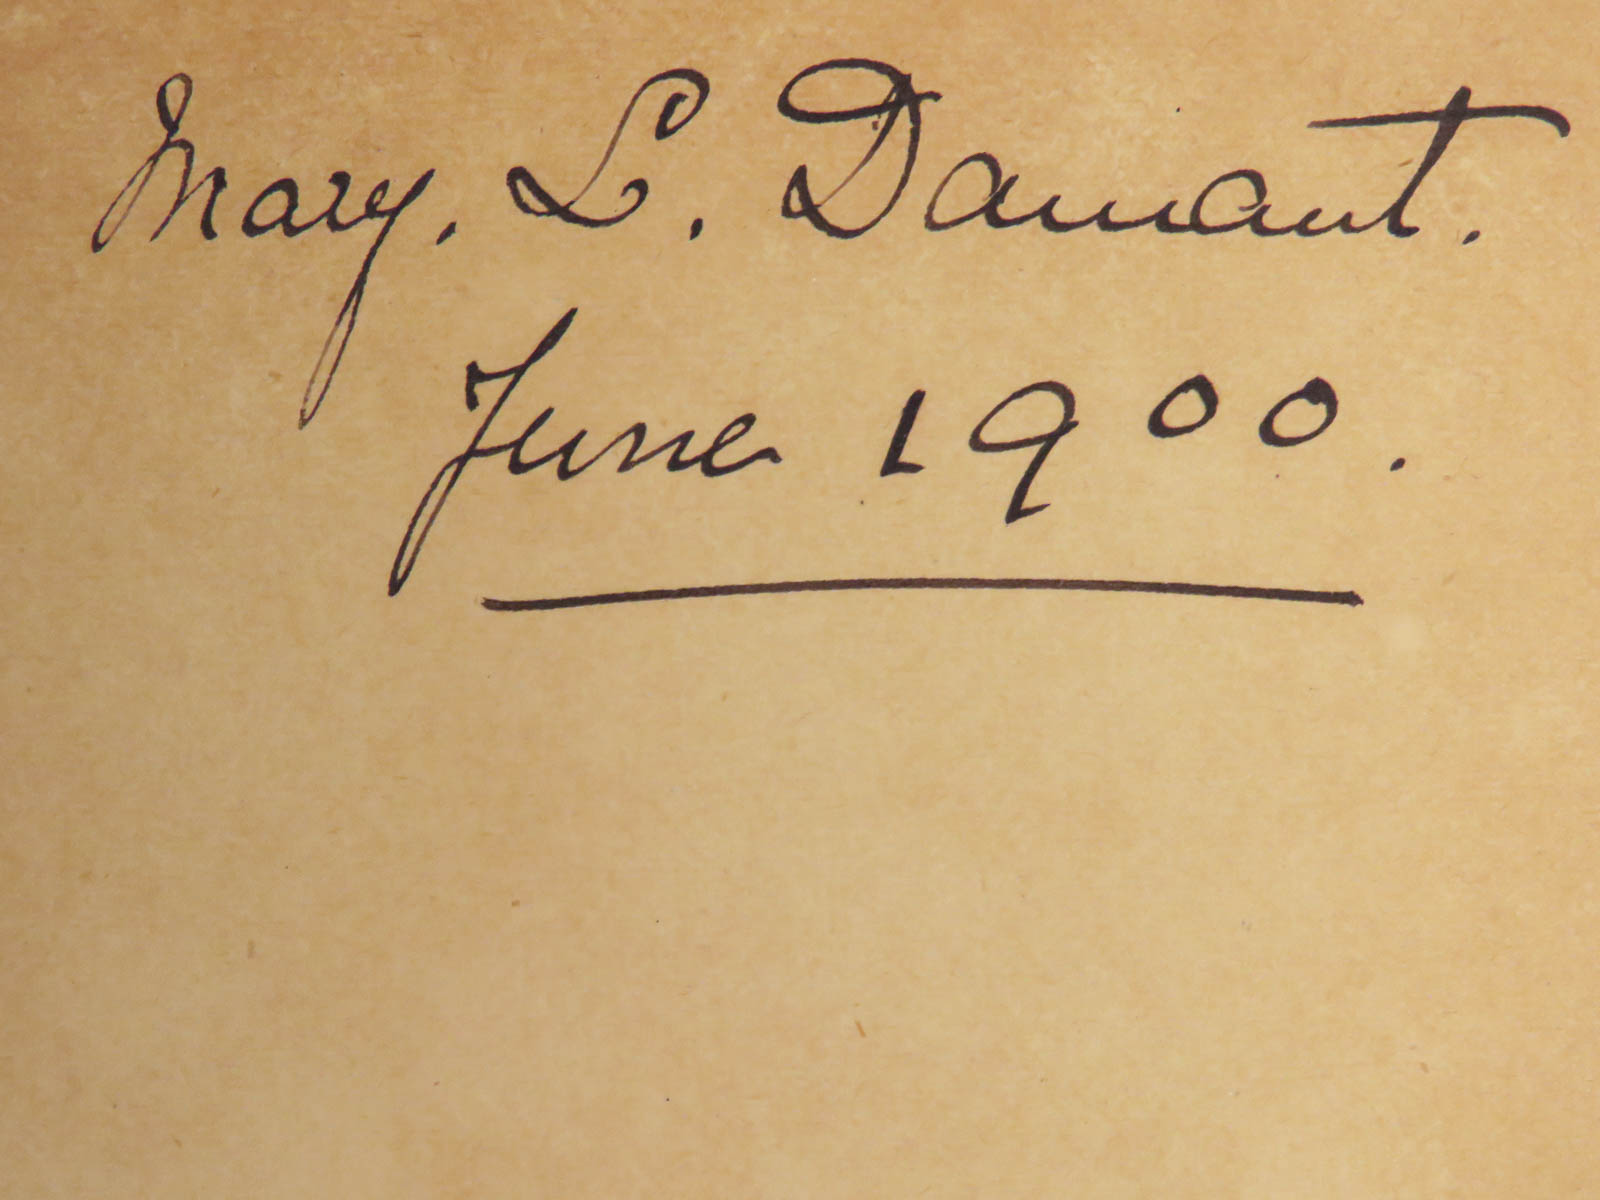 Mary. L. Damant.
June 1900.